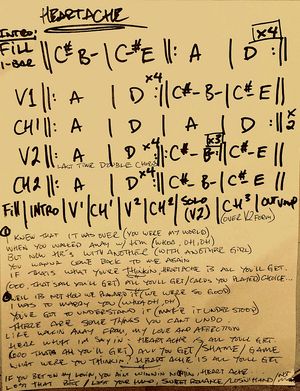 HEARTACHE
INTRO:
FILL 1-BAR || C# B- | C# E ||: A | D :|| x4
V1 ||: A | D x4 :|| C# - B- | C# - E ||
CH1 ||: A | D :|| C# - B- | C# - E || x2
V2 ||: A | D x4 :|| C# - B- x3 :|| C# - E ||
LAST TIME DOUBLE CHORUS
CH2 ||: A | D x4 :|| C# - B- | C# - E ||
Fill | INTRO | V1 | CH1 | V2 | CH2 | SOLO (V2) | CH3 | OUT VAMP
(OVER V2 FORM)
① KNEW THAT IT WAS OVER (YOU WERE MY WORLD)
WHEN YOU WALKED AWAY W/ HIM (WHOA, OH, OH)
BUT NOW HE'S WITH ANOTHER (WITH ANOTHER GIRL)
YOU WANNA CRAWL BACK TO ME AGAIN
IF THAT'S WHAT YOU'RE THINKING HEARTACHE IS ALL YOU'LL GET.
(OOO, THAT'S ALL YOU'LL GET) ALL YOU'LL GET / CARDS YOU PLAYED / CHOICE...
② WELL IT'S NOT HOW WE PLANNED IT (WE WERE SO GOOD)
I WAS TO MARRY YOU (WHOA OH, OH)
YOU'VE GOT TO UNDERSTAND IT (MAKE IT UNDERSTOOD)
THERE ARE SOME THINGS YOU CAN'T UNDO
LIKE WALKIN AWAY FROM MY LOVE AND AFFECTION
HEAR WHAT I'M SAYIN: HEARTACHE IS ALL YOU'LL GET
(OOO THAT'S ALL YOU'LL GET) ALL YOU GET / SHAME / GAME
WHAT WERE YOU THINKIN? HEARTACHE IS ALL YOU'LL GET
IF YOU BEG IN MY LOVIN, YOU AIN'T WINNIN NOTHIN, HEARTACHE...
LOST YOUR MIND, SWEET ROMANCE /